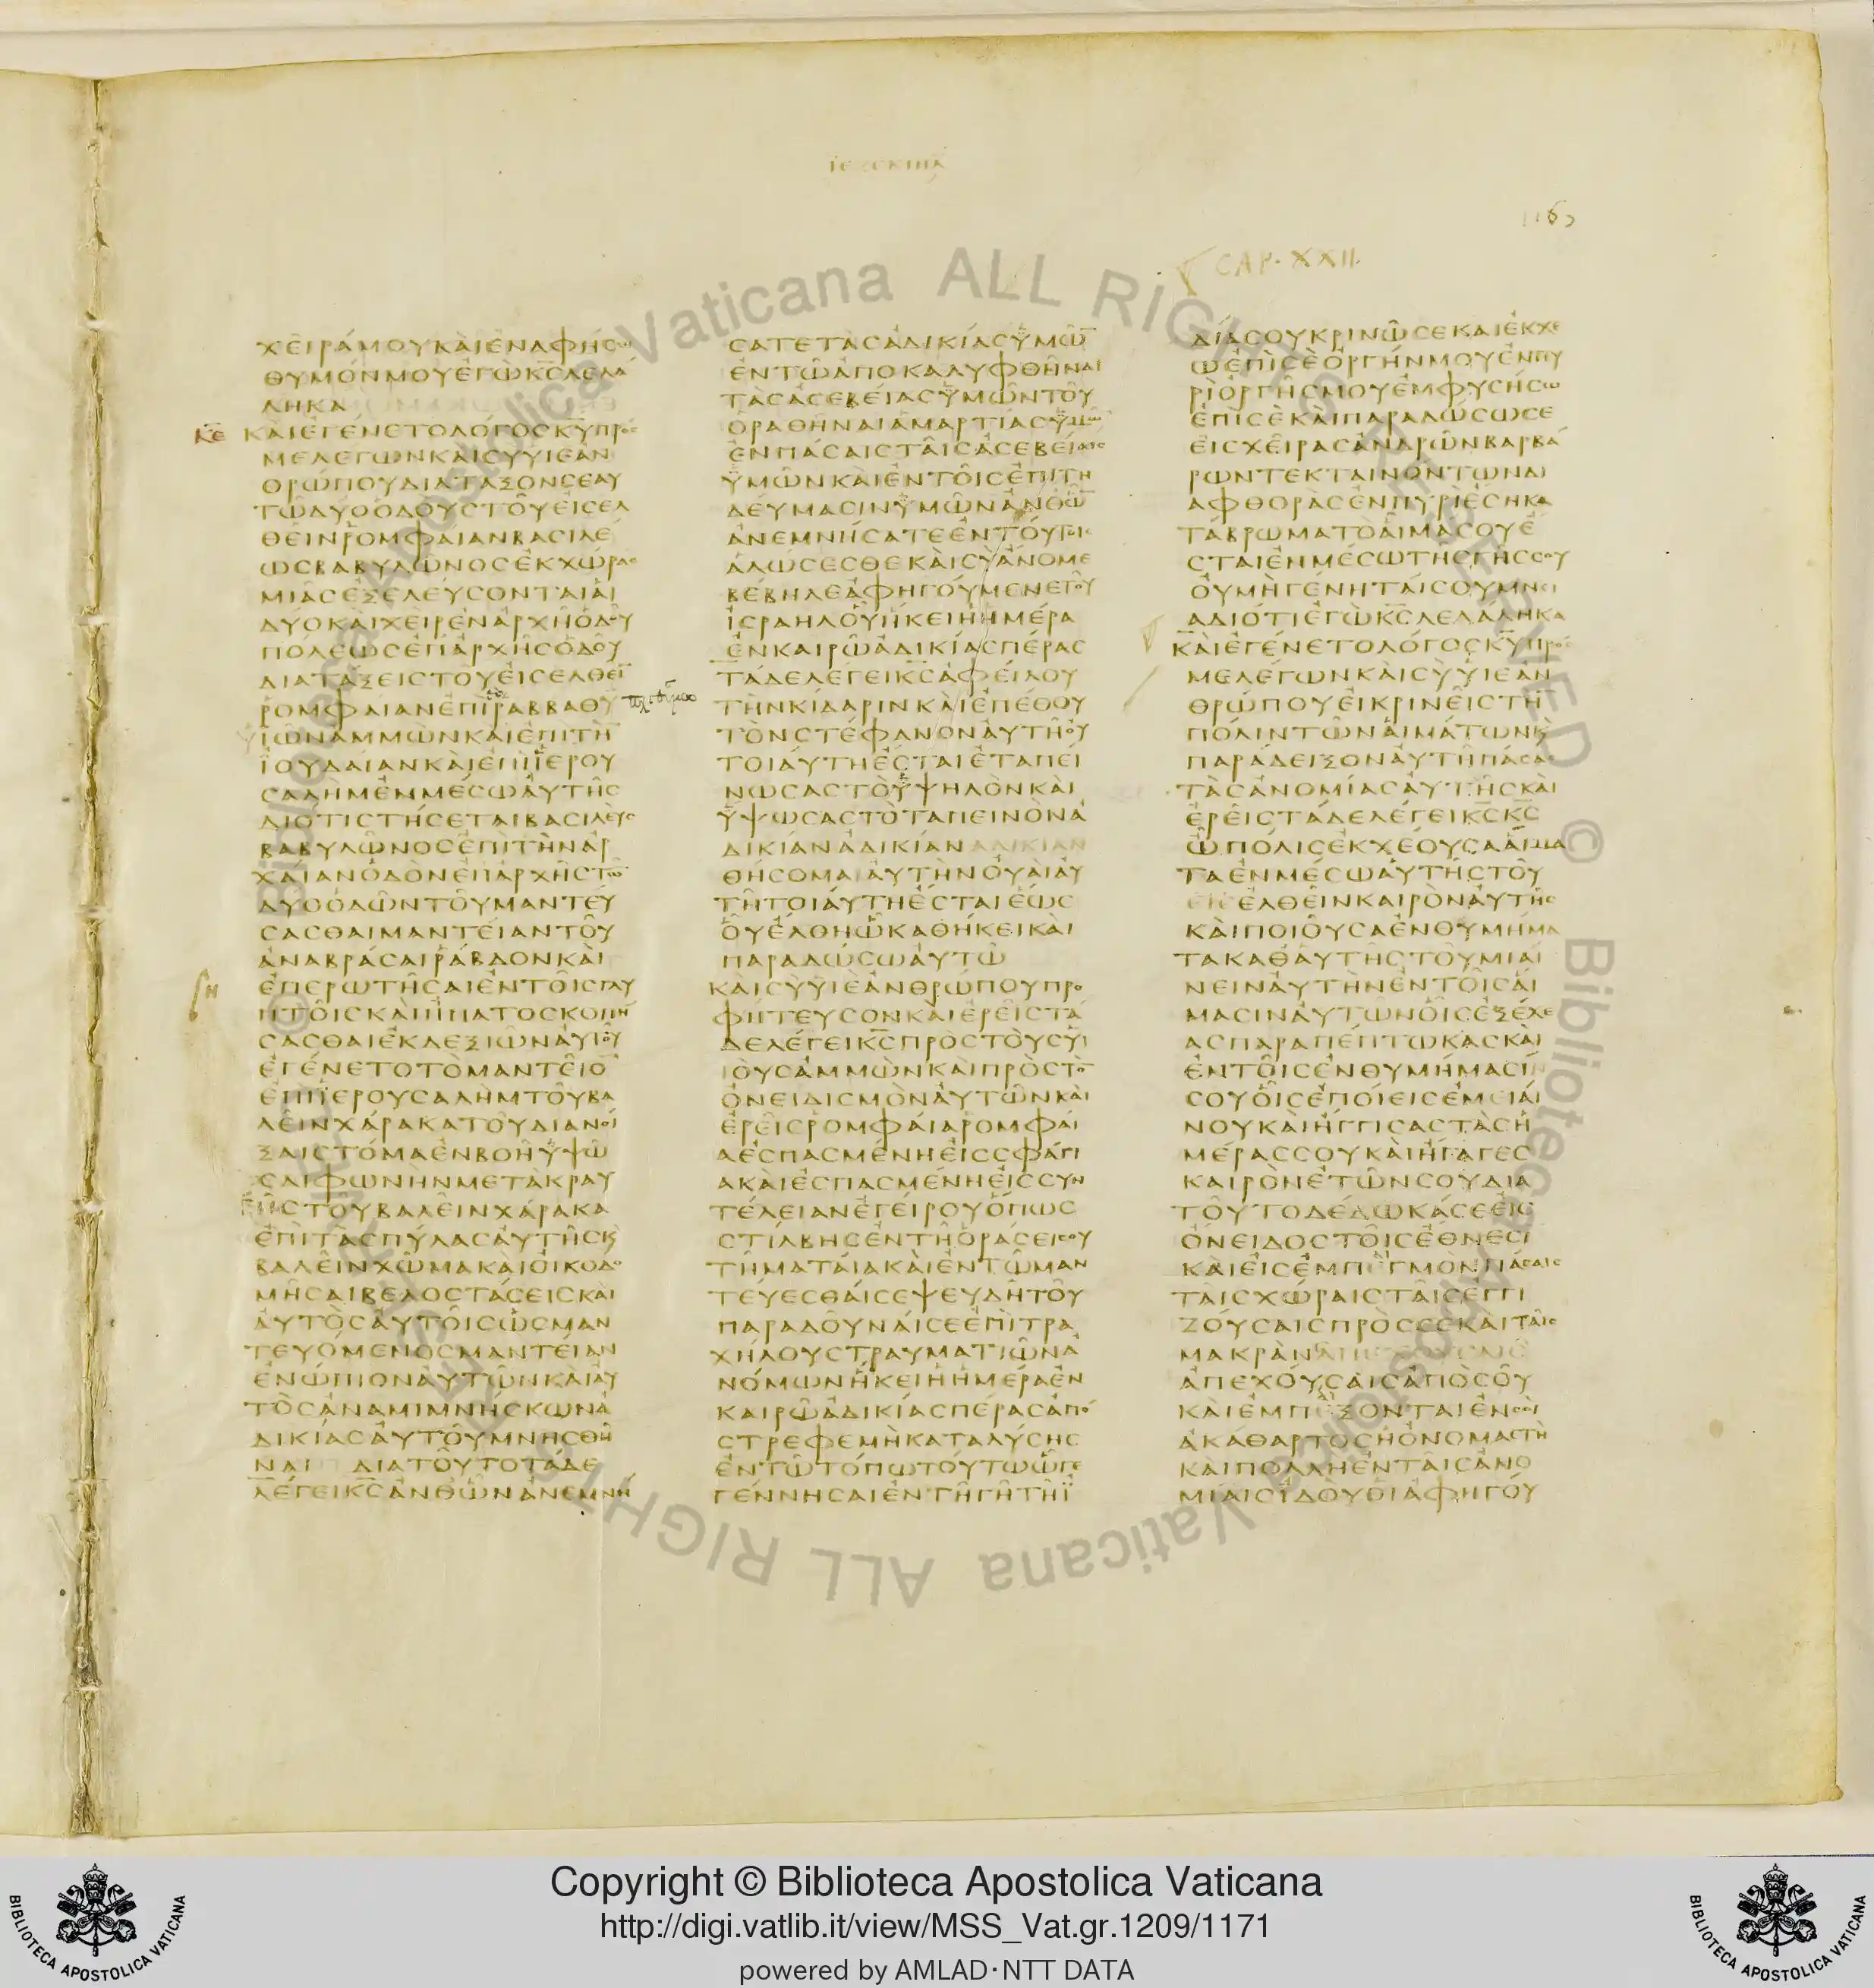 ΙΕΖΕΚΙΗΛ
CAP. XXII.
ΧΕΙΡΑΜΟΥΚΑΙΕΝΑΦΗCΩ
ΘΥΜΟΝΜΟΥΕΓΩΚ̅C̅ΛΕΛΑ
ΛΗΚΑ
Κ̅Ε̅ ΚΑΙΕΓΕΝΕΤΟΛΟΓΟCΚ̅Υ̅ΠΡΟC
ΜΕΛΕΓΩΝΚΑΙCΥΥΙΕΑΝ
ΘΡΩΠΟΥΔΙΑΤΑΞΟΝCΕΑΥ
ΤΩΔΥΟΟΔΟΥCΤΟΥΕΙCΕΛ
ΘΕΙΝΡΟΜΦΑΙΑΝΒΑCΙΛΕ
ΩCΒΑΒΥΛΩΝΟCΕΚΧΩΡΑC
ΜΙΑCΕΞΕΛΕΥCΟΝΤΑΙΑΙ
ΔΥΟΚΑΙΧΕΙΡΕΝΑΡΧΗΟΔΟΥ
ΠΟΛΕΩCΕΠΑΡΧΗCΟΔΟΥ
ΔΙΑΤΑΞΕΙCΤΟΥΕΙCΕΛΘΕΙ̅
ΡΟΜΦΑΙΑΝΕΠΙΡΑΒΒΑΘΥ
ΙΩΝΑΜΜΩΝΚΑΙΕΠΙΤΗ̅
ΙΟΥΔΑΙΑΝΚΑΙΕΠΙΙΕΡΟΥ
CΑΛΗΜΕΝΜΕCΩΑΥΤΗC
ΔΙΟΤΙCΤΗCΕΤΑΙΒΑCΙΛΕΥC
ΒΑΒΥΛΩΝΟCΕΠΙΤΗΝΑΡ
ΧΑΙΑΝΟΔΟΝΕΠΑΡΧΗCΤΩ̅
ΔΥΟΟΔΩΝΤΟΥΜΑΝΤΕΥ
CΑCΘΑΙΜΑΝΤΕΙΑΝΤΟΥ
ΑΝΑΒΡΑCΑΙΡΑΒΔΟΝΚΑΙ
ΕΠΕΡΩΤΗCΑΙΕΝΤΟΙCΓΛΥ
ΠΤΟΙCΚΑΙΗΠΑΤΟCΚΟΠΗ
CΑCΘΑΙΕΚΔΕΞΙΩΝΑΥΤΟΥ
ΕΓΕΝΕΤΟΤΟΜΑΝΤΕΙΟ̅
ΕΠΙΙΕΡΟΥCΑΛΗΜΤΟΥΒΑ
ΛΕΙΝΧΑΡΑΚΑΤΟΥΔΙΑΝΟΙ
ΞΑΙCΤΟΜΑΕΝΒΟΗΥΨΩ
CΑΙΦΩΝΗΝΜΕΤΑΚΡΑΥ
ΓΗCΤΟΥΒΑΛΕΙΝΧΑΡΑΚΑ
ΕΠΙΤΑCΠΥΛΑCΑΥΤΗCΚ
ΒΑΛΕΙΝΧΩΜΑΚΑΙΟΙΚΟΔΟ
ΜΗCΑΙΒΕΛΟCΤΑCΕΙCΚΑΙ
ΑΥΤΟCΑΥΤΟΙCΩCΜΑΝ
ΤΕΥΟΜΕΝΟCΜΑΝΤΕΙΑΝ
ΕΝΩΠΙΟΝΑΥΤΩΝΚΑΙΑΥ
ΤΟCΑΝΑΜΙΜΝΗCΚΩΝΑ
ΔΙΚΙΑCΑΥΤΟΥΜΝΗCΘΗ
ΝΑΙ ΔΙΑΤΟΥΤΟΤΑΔΕ
ΛΕΓΕΙΚ̅C̅ΑΝΘΩΝΑΝΕΜΝΗ
CΑΤΕΤΑCΑΔΙΚΙΑCΥΜΩ̅
ΕΝΤΩΑΠΟΚΑΛΥΦΘΗΝΑΙ
ΤΑCΑCΕΒΕΙΑCΥΜΩΝΤΟΥ
ΟΡΑΘΗΝΑΙΑΜΑΡΤΙΑCΥΜΩ̅
ΕΝΠΑCΑΙCΤΑΙCΑCΕΒΕΙΑΙC
ΥΜΩΝΚΑΙΕΝΤΟΙCΕΠΙΤΗ
ΔΕΥΜΑCΙΝΥΜΩΝΑΝΘΩ̅
ΑΝΕΜΝΗCΑΤΕΕΝΤΟΥΤΟΙC
ΑΛΩCΕCΘΕΚΑΙCΥΑΝΟΜΕ
ΒΕΒΗΛΕΑΦΗΓΟΥΜΕΝΕΤΟΥ
ΙCΡΑΗΛΟΥΗΚΕΙΗΗΜΕΡΑ
ΕΝΚΑΙΡΩΑΔΙΚΙΑCΠΕΡΑC
ΤΑΔΕΛΕΓΕΙΚ̅C̅ΑΦΕΙΛΟΥ
ΤΗΝΚΙΔΑΡΙΝΚΑΙΕΠΕΘΟΥ
ΤΟΝCΤΕΦΑΝΟΝΑΥΤΗΟΥ
ΤΟΙΑΥΤΗΕCΤΑΙΕΤΑΠΕΙ
ΝΩCΑCΤΟΥΨΗΛΟΝΚΑΙ
ΥΨΩCΑCΤΟΤΑΠΕΙΝΟΝΑ
ΔΙΚΙΑΝΑΔΙΚΙΑΝΑΔΙΚΙΑΝ
ΘΗCΟΜΑΙΑΥΤΗΝΟΥΑΙΑΥ
ΤΗΤΟΙΑΥΤΗΕCΤΑΙΕΩC
ΟΥΕΛΘΗΩΚΑΘΗΚΕΙΚΑΙ
ΠΑΡΑΔΩCΩΑΥΤΩ
ΚΑΙCΥΥΙΕΑΝΘΡΩΠΟΥΠΡΟ
ΦΗΤΕΥCΟΝΚΑΙΕΡΕΙCΤΑ
ΔΕΛΕΓΕΙΚ̅C̅ΠΡΟCΤΟΥCΥΙ
ΟΥCΑΜΜΩΝΚΑΙΠΡΟCΤΟ̅
ΟΝΕΙΔΙCΜΟΝΑΥΤΩΝΚΑΙ
ΕΡΕΙCΡΟΜΦΑΙΑΡΟΜΦΑΙ
ΑΕCΠΑCΜΕΝΗΕΙCCΦΑΓΙ
ΑΚΑΙΕCΠΑCΜΕΝΗΕΙCCΥΝ
ΤΕΛΕΙΑΝΕΓΕΙΡΟΥΟΠΩC
CΤΙΛΒΗCΕΝΤΗΟΡΑCΕΙCΟΥ
ΤΗΜΑΤΑΙΑΚΑΙΕΝΤΩΜΑΝ
ΤΕΥΕCΘΑΙCΕΨΕΥΔΗΤΟΥ
ΠΑΡΑΔΟΥΝΑΙCΕΕΠΙΤΡΑ
ΧΗΛΟΥCΤΡΑΥΜΑΤΙΩΝΑ
ΝΟΜΩΝΗΚΕΙΗΗΜΕΡΑΕΝ
ΚΑΙΡΩΑΔΙΚΙΑCΠΕΡΑCΑΠΟ
CΤΡΕΦΕΜΗΚΑΤΑΛΥCΗC
ΕΝΤΩΤΟΠΩΤΟΥΤΩΩΓΕ
ΓΕΝΝΗCΑΙΕΝΓΗΓΗΤΗΙ
ΔΙΑCΟΥΚΡΙΝΩCΕΚΑΙΕΚΧΕ
ΩΕΠΙCΕΟΡΓΗΝΜΟΥΕΝΠΥ
ΡΙΟΡΓΗCΜΟΥΕΜΦΥCΗCΩ
ΕΠΙCΕΚΑΙΠΑΡΑΔΩCΩCΕ
ΕΙCΧΕΙΡΑCΑΝΔΡΩΝΒΑΡΒΑ
ΡΩΝΤΕΚΤΑΙΝΟΝΤΩΝΔΙ
ΑΦΘΟΡΑCΕΝΠΥΡΙΕCΗΚΑ
ΤΑΒΡΩΜΑΤΟΑΙΜΑCΟΥΕ
CΤΑΙΕΝΜΕCΩΤΗCΓΗCCΟΥ
ΟΥΜΗΓΕΝΗΤΑΙCΟΥΜΝΕΙ
ΑΔΙΟΤΙΕΓΩΚ̅C̅ΛΕΛΑΛΗΚΑ
ΚΑΙΕΓΕΝΕΤΟΛΟΓΟCΚ̅Υ̅ΠΡΟC
ΜΕΛΕΓΩΝΚΑΙCΥΥΙΕΑΝ
ΘΡΩΠΟΥΕΙΚΡΙΝΕΙCΤΗ̅
ΠΟΛΙΝΤΩΝΑΙΜΑΤΩΝΚ
ΠΑΡΑΔΕΙΞΟΝΑΥΤΗΠΑCΑC
ΤΑCΑΝΟΜΙΑCΑΥΤΗCΚΑΙ
ΕΡΕΙCΤΑΔΕΛΕΓΕΙΚ̅C̅Κ̅C̅
ΩΠΟΛΙCΕΚΧΕΟΥCΑΑΙΜΑ
ΤΑΕΝΜΕCΩΑΥΤΗCΤΟΥ
ΕΙCΕΛΘΕΙΝΚΑΙΡΟΝΑΥΤΗC
ΚΑΙΠΟΙΟΥCΑΕΝΘΥΜΗΜΑ
ΤΑΚΑΘΑΥΤΗCΤΟΥΜΙΑΙ
ΝΕΙΝΑΥΤΗΝΕΝΤΟΙCΑΙ
ΜΑCΙΝΑΥΤΩΝΟΙCΕΞΕΧΕ
ΑCΠΑΡΑΠΕΠΤΩΚΑCΚΑΙ
ΕΝΤΟΙCΕΝΘΥΜΗΜΑCΙΝ
CΟΥΟΙCΕΠΟΙΕΙCΕΜΕΙΑΙ
ΝΟΥΚΑΙΗΓΓΙCΑCΤΑCΗ
ΜΕΡΑCCΟΥΚΑΙΗΓΑΓΕC
ΚΑΙΡΟΝΕΤΩΝCΟΥΔΙΑ
ΤΟΥΤΟΔΕΔΩΚΑCΕΕΙC
ΟΝΕΙΔΟCΤΟΙCΕΘΝΕCΙ
ΚΑΙΕΙCΕΜΠΕΓΜΟΝΠΑCΑΙC
ΤΑΙCΧΩΡΑΙCΤΑΙCΕΓΓΙ
ΖΟΥCΑΙCΠΡΟCCΕΚΑΙΤΑΙC
ΜΑΚΡΑΝ
ΑΠΕΧΟΥCΑΙCΑΠΟCΟΥ
ΚΑΙΕΜΠΕΞΟΝΤΑΙΕΝCΟΙ
ΑΚΑΘΑΡΤΟCΗΟΝΟΜΑCΤΗ
ΚΑΙΠΟΛΛΗΕΝΤΑΙCΑΝΟ
ΜΙΑΙCΙΔΟΥΟΙΑΦΗΓΟΥ
Copyright © Biblioteca Apostolica Vaticana
http://digi.vatlib.it/view/MSS_Vat.gr.1209/1171
powered by AMLAD·NTT DATA
BIBLIOTECA APOSTOLICA VATICANA
BIBLIOTECA APOSTOLICA VATICANA